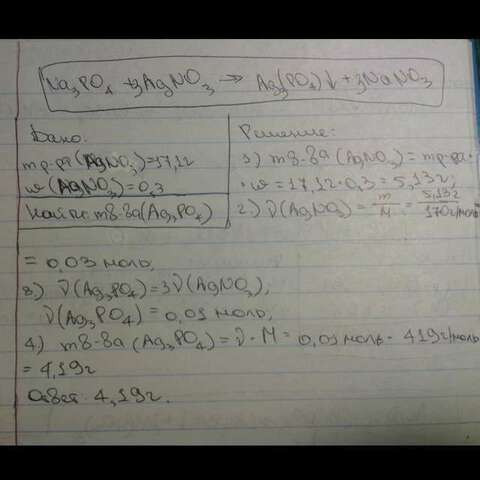 Na₃PO₄ + 3AgNO₃ → Ag₃(PO₄)↓ + 3NaNO₃
Дано:
mр-ра(AgNO₃)=17,1г
ω(AgNO₃)=0,3
Найти: mв-ва(Ag₃PO₄)
Решение:
1) mв-ва(AgNO₃) = mр-ра·
·ω = 17,1г·0,3 = 5,13г;
2) ν(AgNO₃) = m/M = 5,13г/170г/моль
= 0,03 моль;
3) ν(Ag₃PO₄)=3ν(AgNO₃);
ν(Ag₃PO₄) = 0,01 моль;
4) mв-ва (Ag₃PO₄) = ν·M = 0,01 моль · 419г/моль
= 4,19г
Ответ: 4,19г.